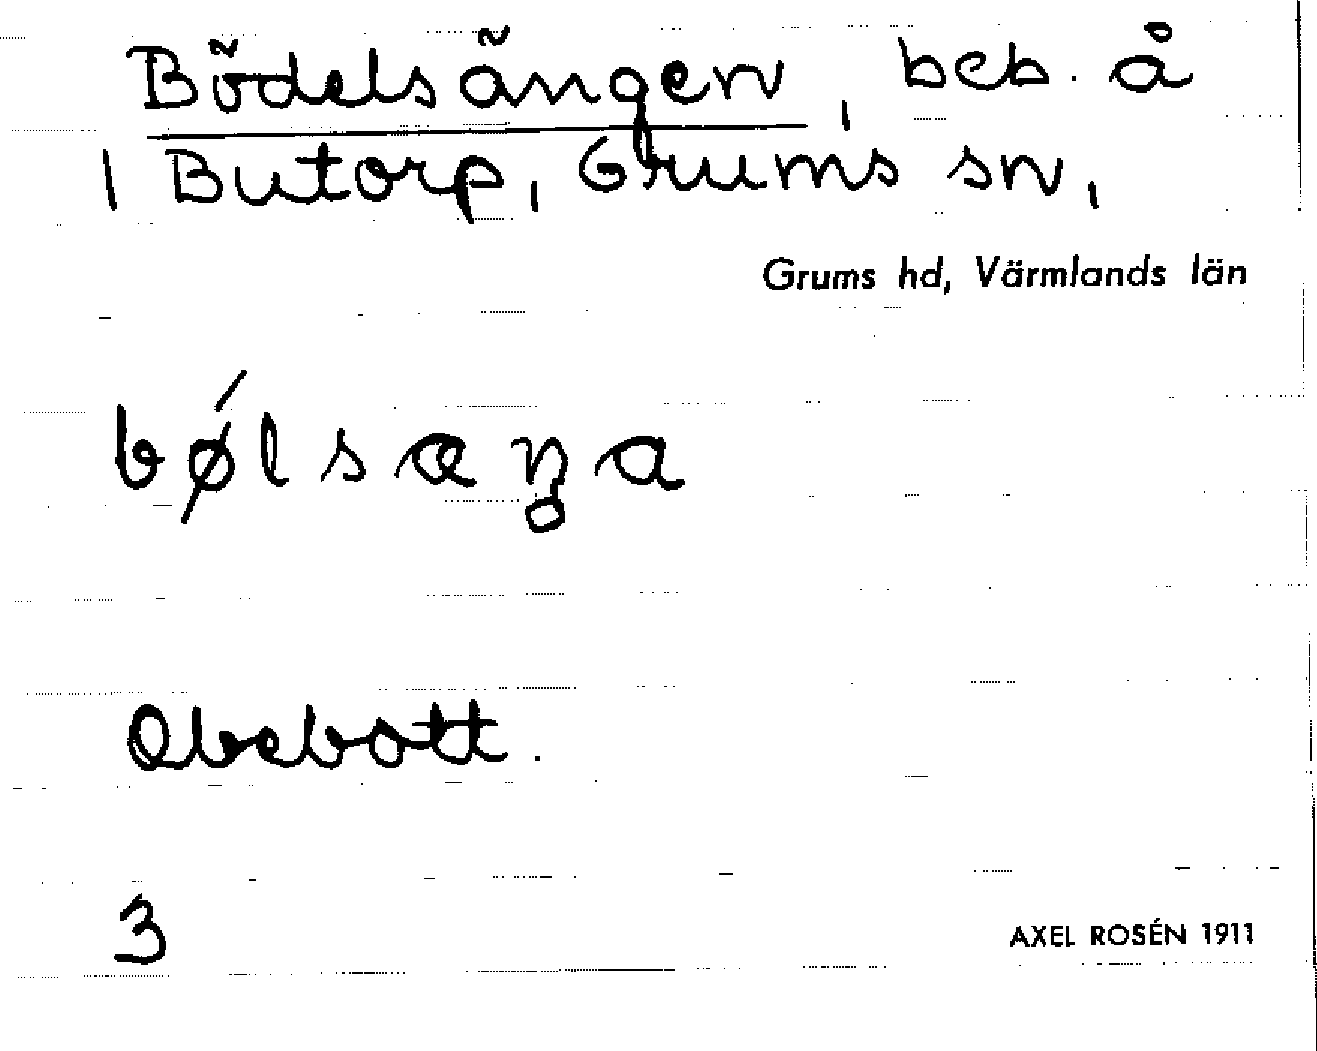 Bödelsängen, beb. å
1 Butorp, Grums sn,
Grums hd, Värmlands län
bǿlsæŋa
Obebott.
3
AXEL ROSÉN 1911